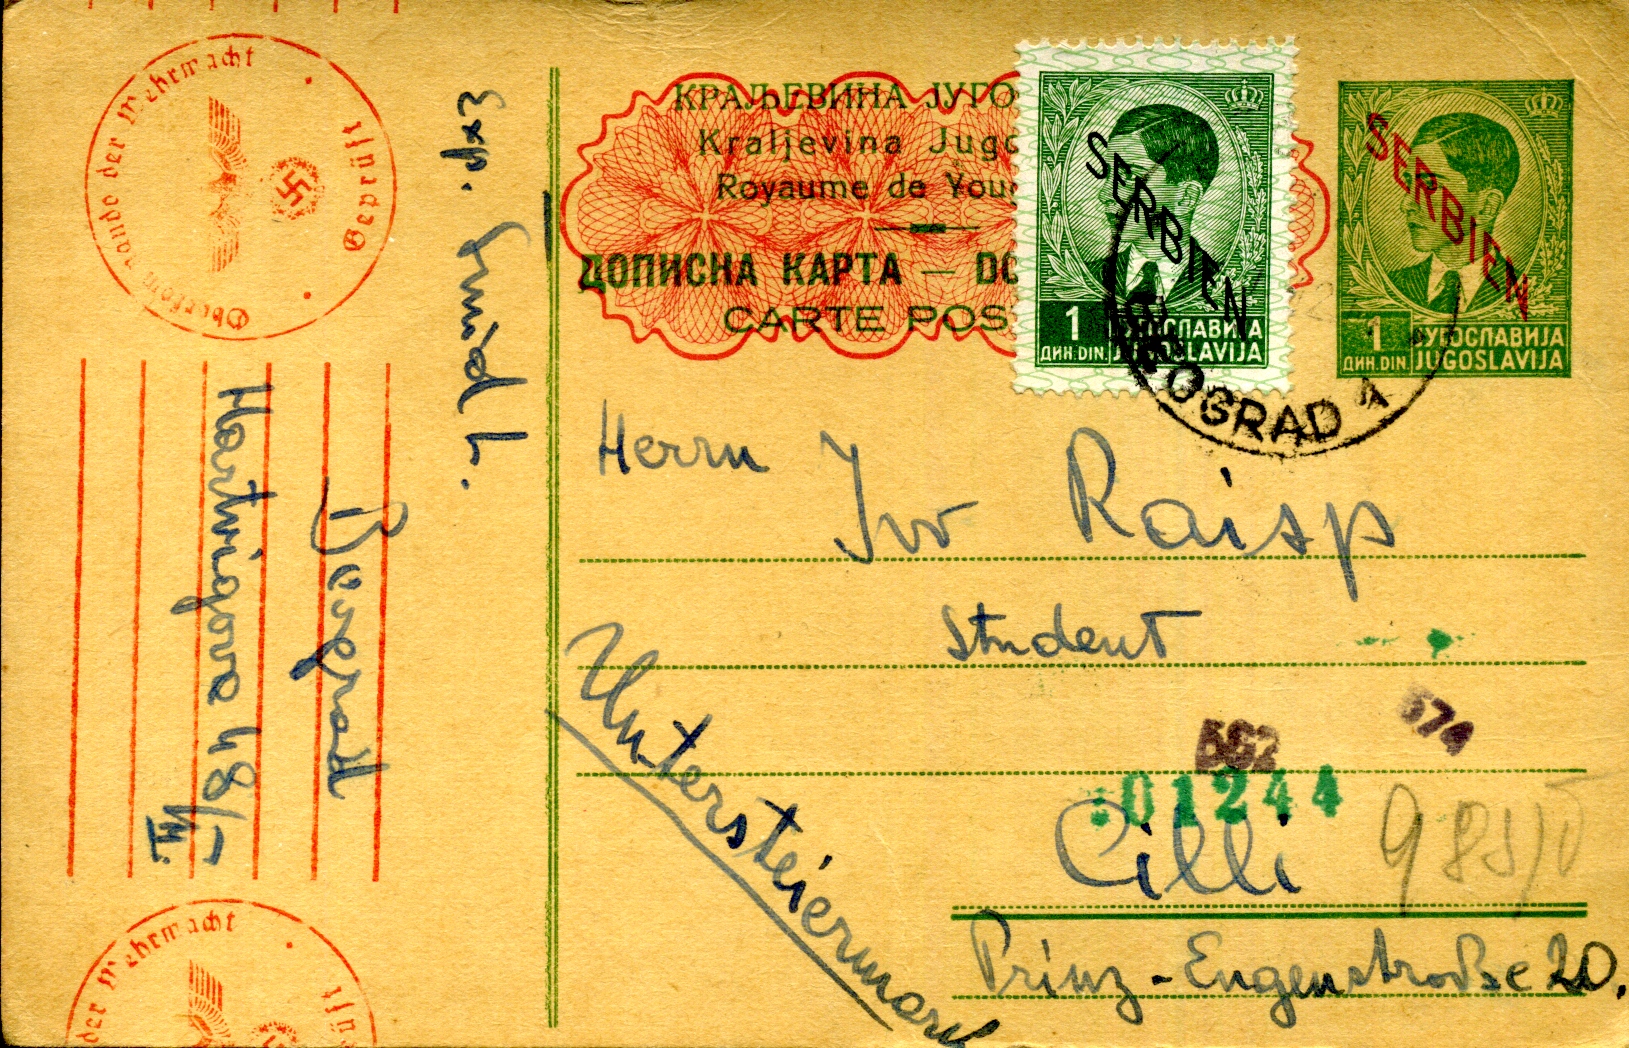 Oberkommando der Wehrmacht
Geprüft
Exp. Šmid L.
Beograd
Hartvigova 48/VII.
КРАЉЕВИНА ЈУГО
Kraljevina Jugo
Royaume de Youg
ДОПИСНА КАРТА — DO
CARTE POS
SERBIEN
1
ДИН. DIN.
ЈУГОСЛАВИЈА
JUGOSLAVIJA
SERBIEN
1
ДИН. DIN.
ЈУГОСЛАВИЈА
JUGOSLAVIJA
BEOGRAD 1
Herrn
Ivo Raisp
Student
574
562
:01244
Cilli
Prinz-Eugenstraße 20.
Untersteiermark
der Wehrmacht